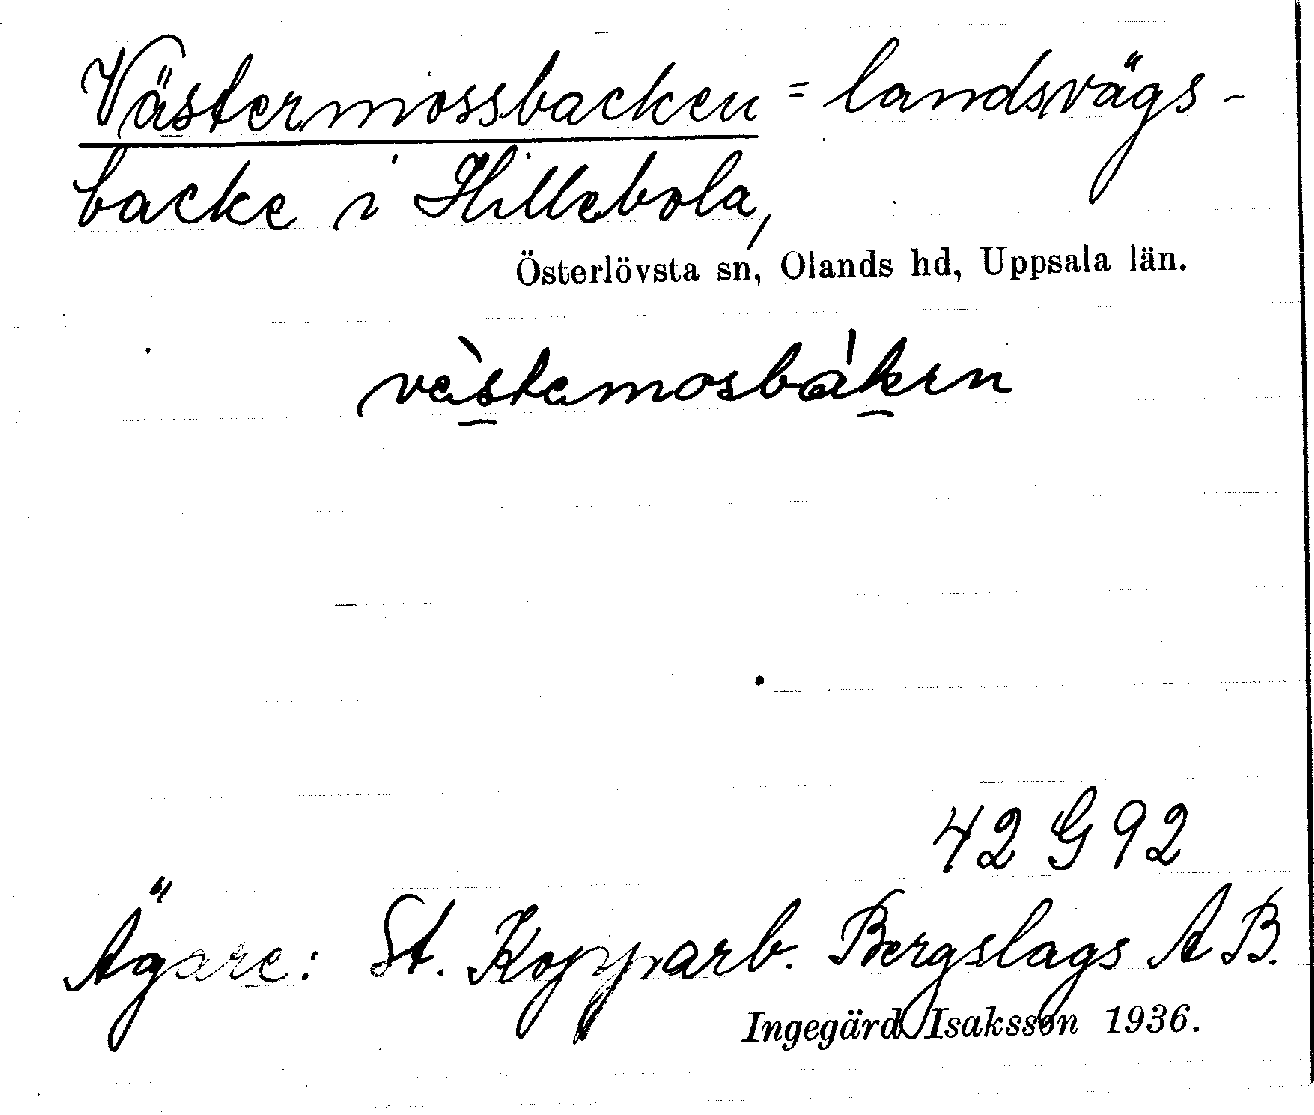 Västermossbacken = landsvägs-
backe i Hillebola,
Österlövsta sn, Olands hd, Uppsala län.
vèstemosbáken
42 G 92
Ägare: St. Kopparb. Bergslags A B.
Ingegärd Isaksson 1936.